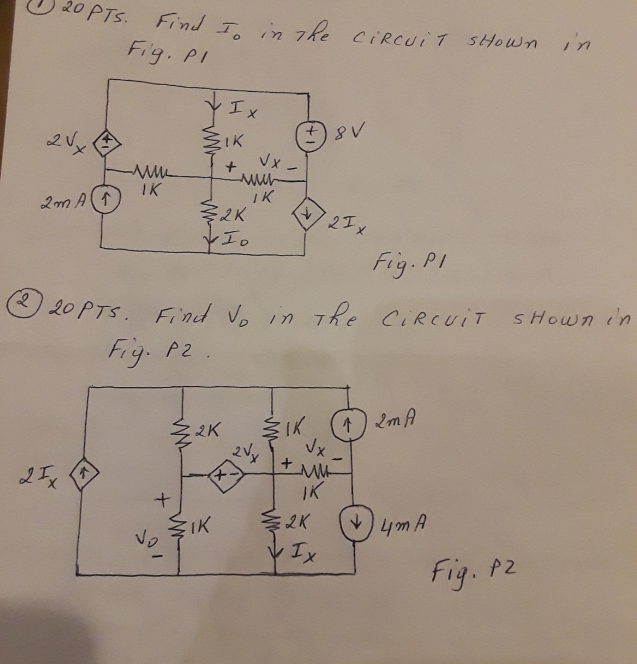 ① 20 PTS. Find I₀ in The CIRCUIT SHOWN in
Fig. P1
Ix
2Vx
1K
8V
+ Vx -
1K
1K
2mA
2K
2Ix
I₀
Fig. P1
② 20 PTS. Find V₀ in The CIRCUIT SHOWN in
Fig. P2.
2K
1K
2mA
2Vx
+ Vx -
2Ix
1K
+
V₀
-
1K
2K
4mA
Ix
Fig. P2